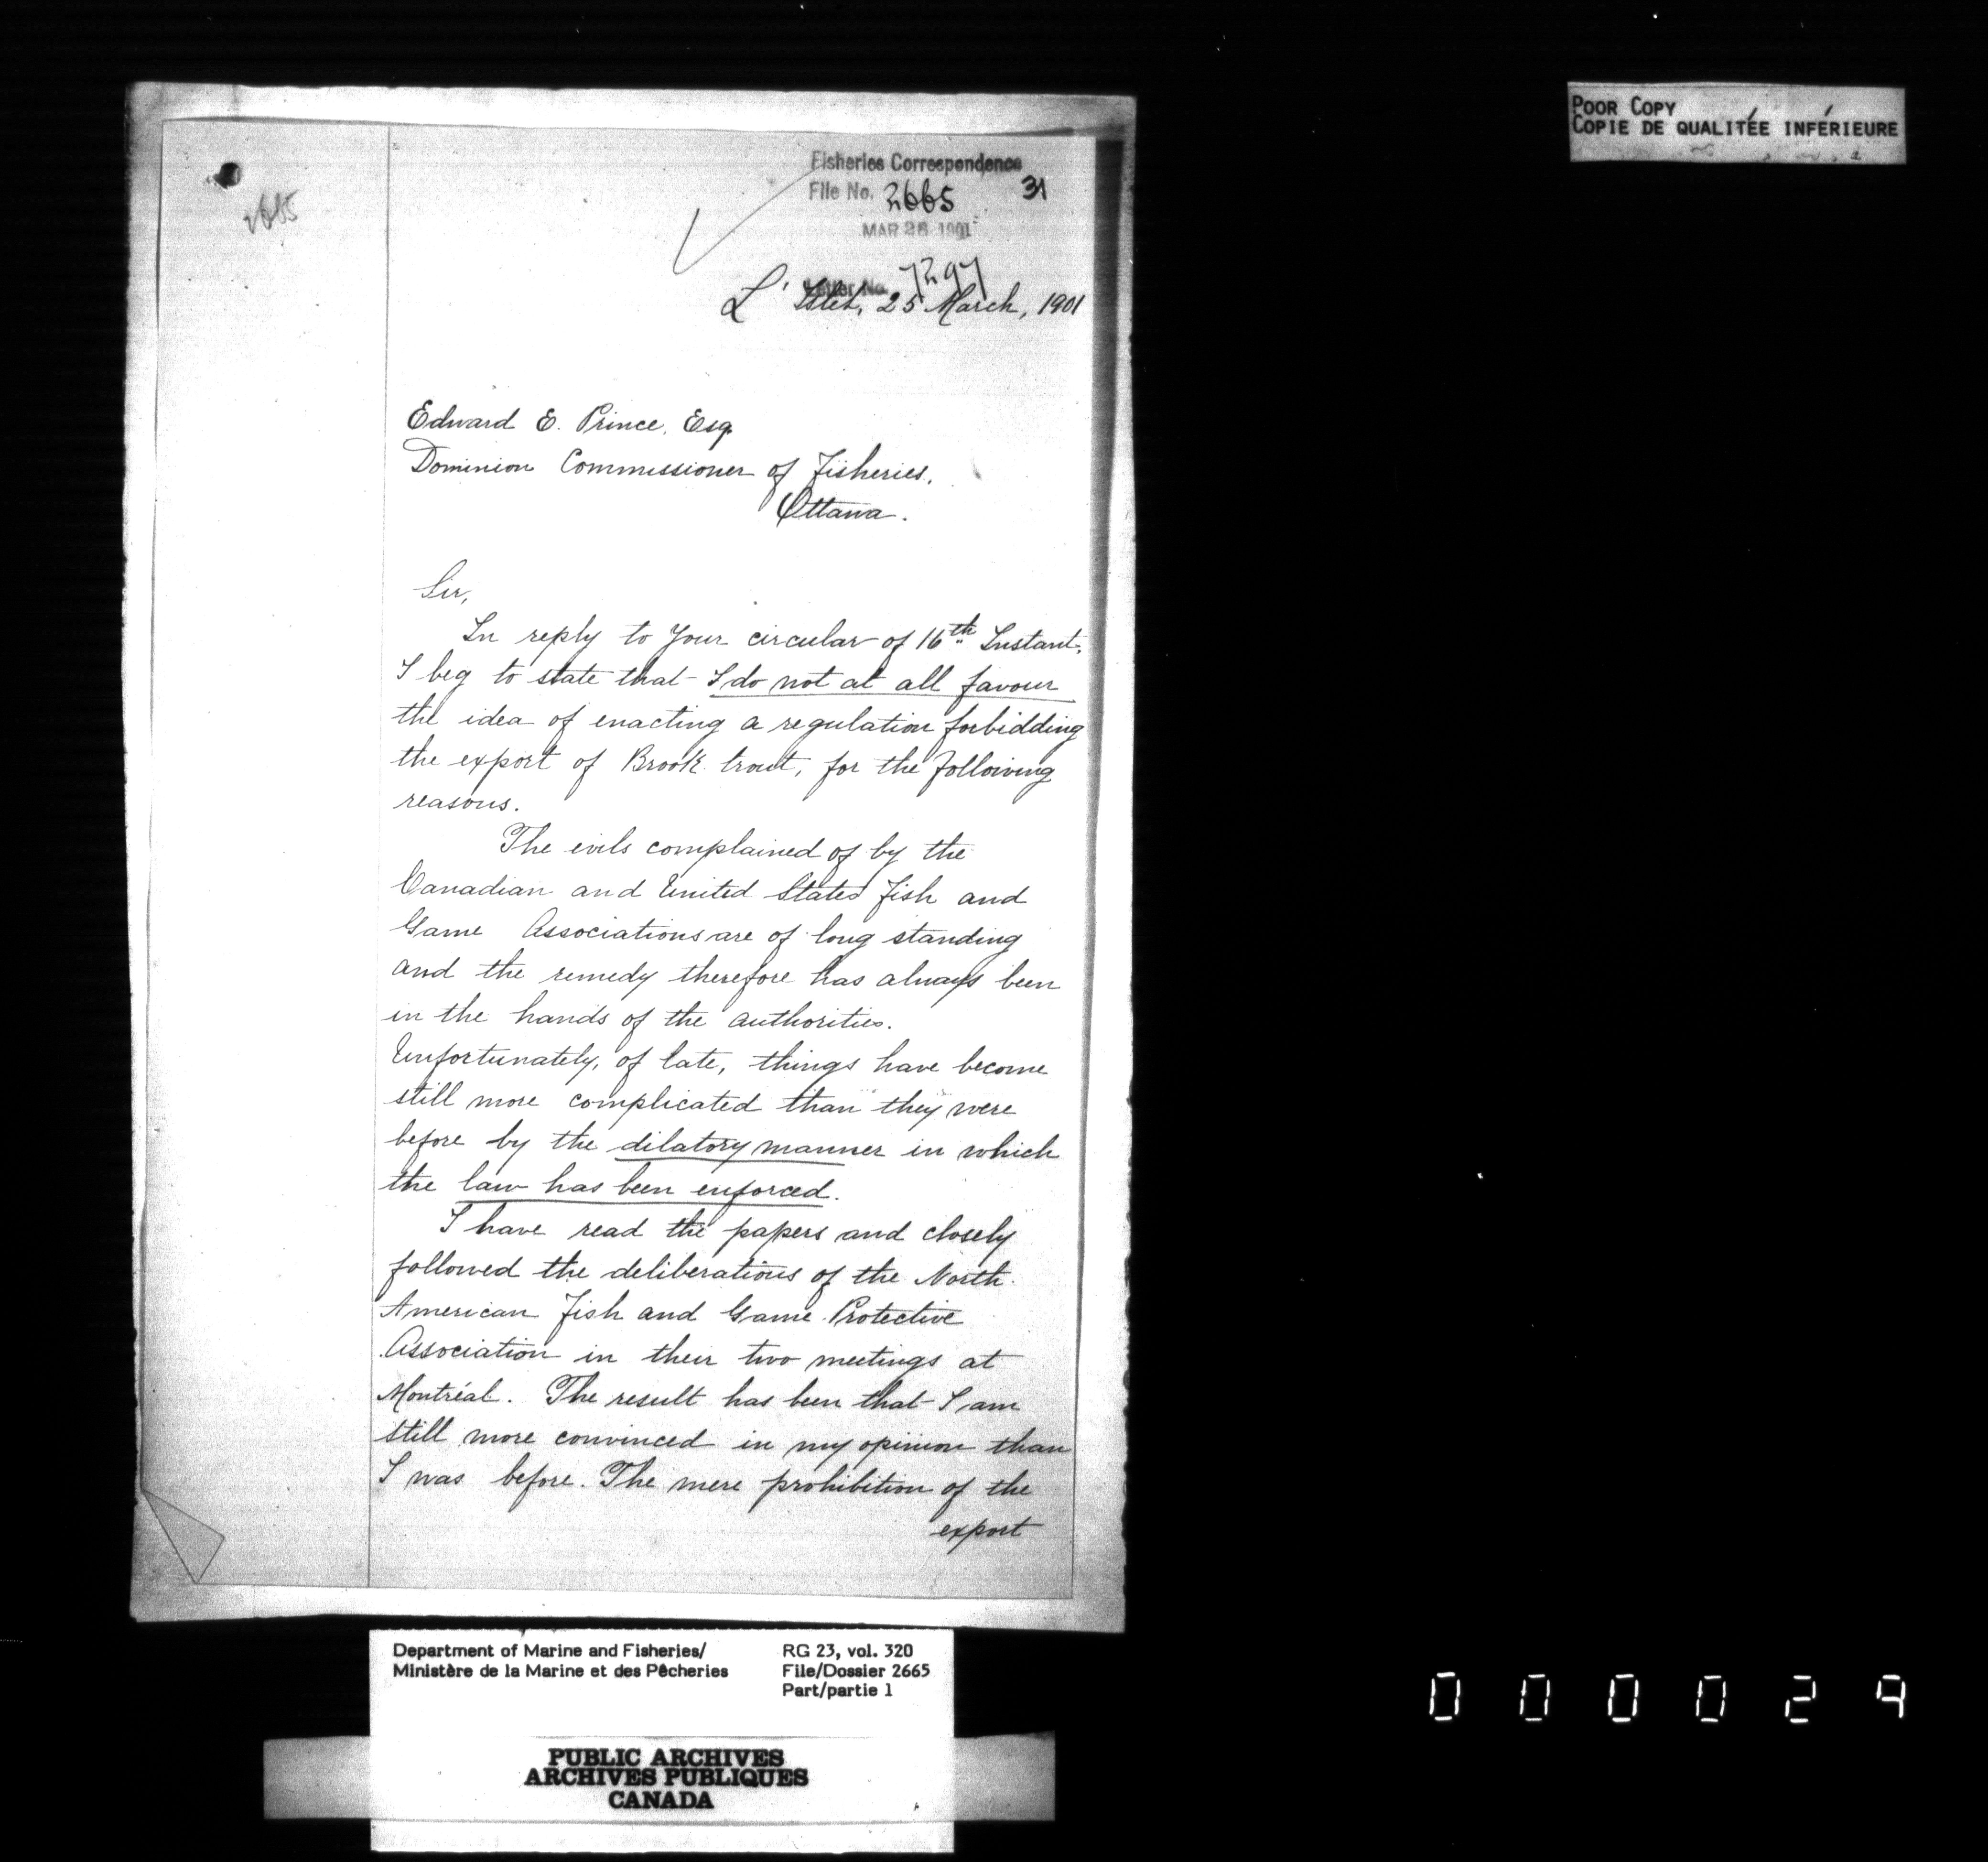 POOR COPY
COPIE DE QUALITÉE INFÉRIEURE
2665
Fisheries Correspondence
File No. 2665 31
MAR 28 1901
Letter No. 7297
L'Islet, 25 March, 1901
Edward E. Prince, Esq.
Dominion Commissioner of Fisheries,
Ottawa.
Sir,
In reply to Your circular of 16th Instant,
I beg to state that I do not at all favour
the idea of enacting a regulation forbidding
the export of Brook trout, for the following
reasons.
The evils complained of by the
Canadian and United States Fish and
Game Associations are of long standing
and the remedy therefore has always been
in the hands of the authorities.
Unfortunately, of late, things have become
still more complicated than they were
before by the dilatory manner in which
the law has been enforced.
I have read the papers and closely
followed the deliberations of the North
American Fish and Game Protective
Association in their two meetings at
Montréal. The result has been that I am
still more convinced in my opinion than
I was before. The mere prohibition of the
export
Department of Marine and Fisheries/
Ministère de la Marine et des Pêcheries
RG 23, vol. 320
File/Dossier 2665
Part/partie 1
PUBLIC ARCHIVES
ARCHIVES PUBLIQUES
CANADA
000029